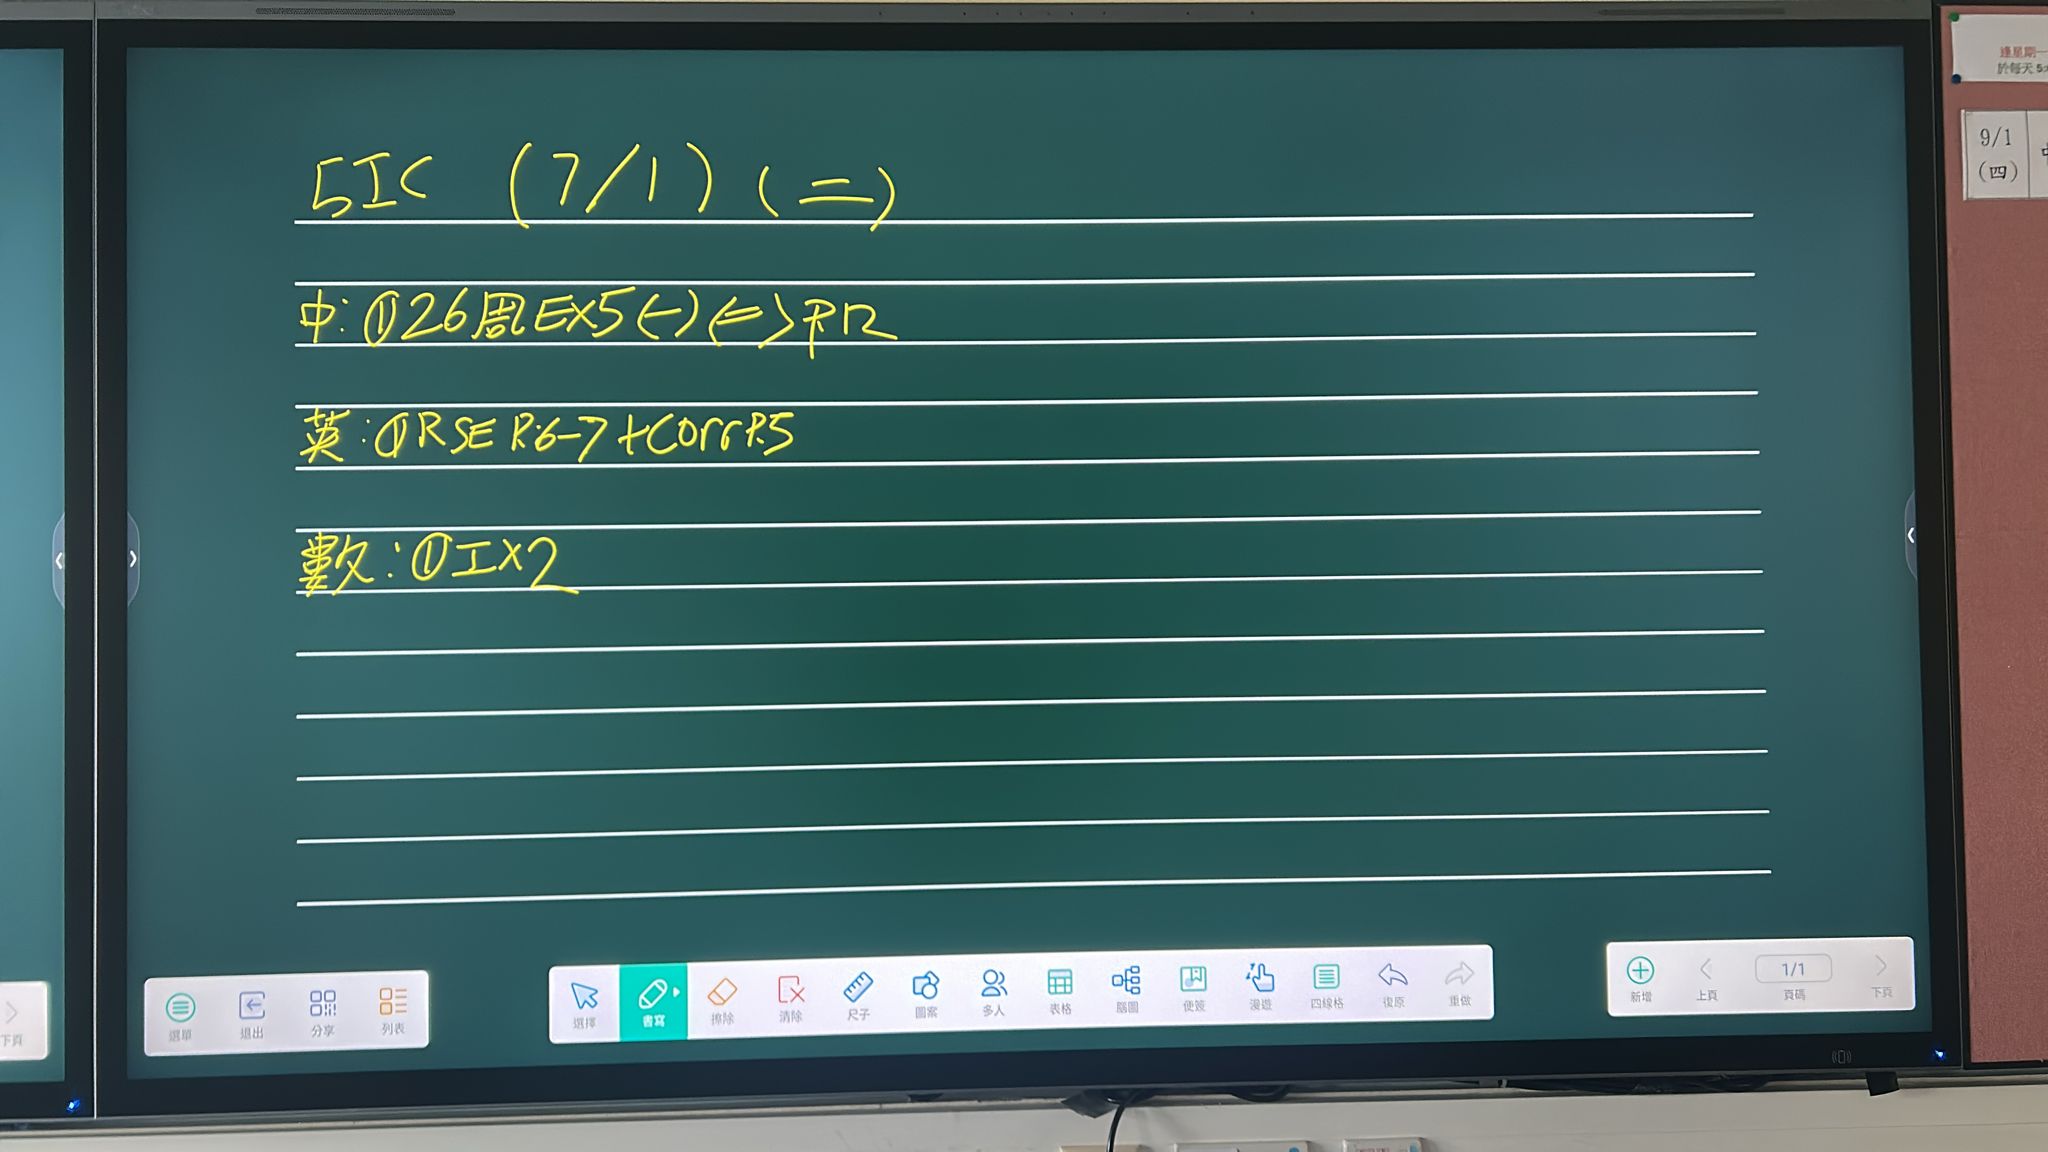 5IC (7/1) (二)
中:①26周EX5(一)(二)P.12
英:①RSE P.6-7+Corr P.5
數:①工X2
逢星期一
於每天 5:
9/1
(四)
下頁
選單 退出 分享 列表
選擇 書寫 擦除 清除 尺子 圖案 多人 表格 腦圖 便簽 漫遊 四線格 復原 重做
新增 上頁 1/1 頁碼 下頁